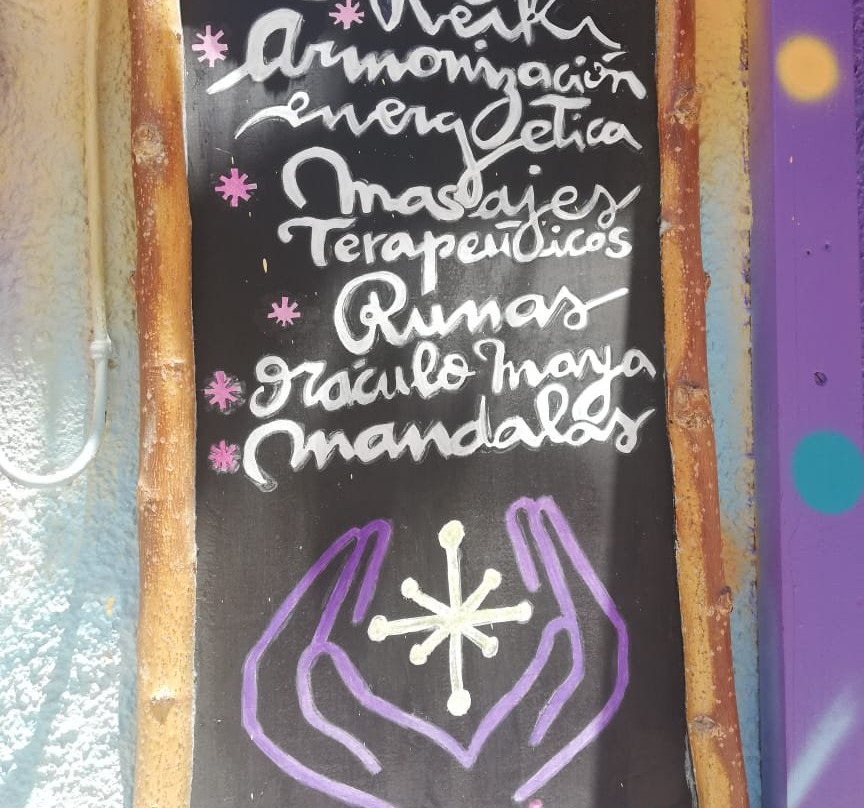 Reiki
Armonización
energética
Masajes
Terapeúticos
Runas
Oráculo Maya
Mandalas